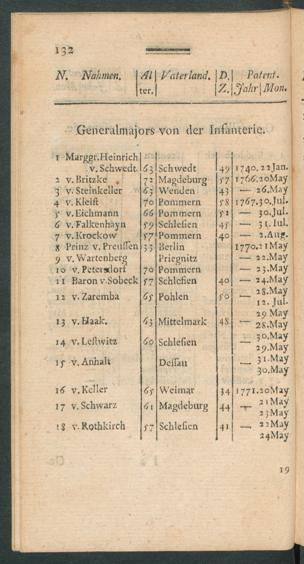 132
N. Nahmen. Al ter. Vaterland. D. Z. Patent. Jahr Mon.
Generalmajors von der Infanterie.
1 Marggr. Heinrich
v. Schwedt 63 Schwedt 49 1740. 22 Jan.
2 v. Britzke 72 Magdeburg 57 1766. 20 May
3 v. Steinkeller 63 Wenden 43 — 26. May
4 v. Kleist 70 Pommern 58 1767. 30. Jul.
5 v. Eichmann 66 Pommern 52 — 30. Jul.
6 v. Falkenhayn 59 Schlesien 45 — 31. Jul.
7 v. Krockow 57 Pommern 40 — 2. Aug.
8 Prinz v. Preussen 33 Berlin 1770. 21 May
9 v. Wartenberg Priegnitz — 22. May
10 v. Petersdorf 70 Pommern — 23. May
11 Baron v. Sobeck 57 Schlesien 40 — 24. May
28. May
12 v. Zaremba 65 Pohlen 50 — 12. Jul.
29 May
13 v. Haak. 63 Mittelmark 48 — 28. May
30. May
14 v. Lestwitz 60 Schlesien — 29. May
31. May
15 v. Anhalt Dessau — 30. May
16 v. Keller 65 Weimar 34 1771. 20 May
21 May
17 v. Schwarz 61 Magdeburg 44 — 23 May
22 May
18 v. Rothkirch 57 Schlesien 41 — 24 May
19